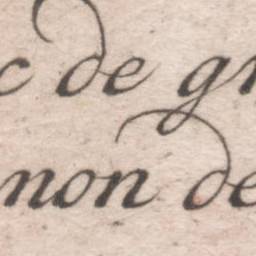 c de gr
non de